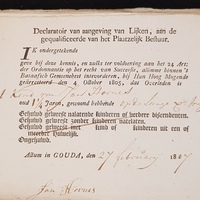 Declaratoir van aangeving van Lijken, aan de
gequalificeerde van het Plaatzelijk Bestuur.
IK ondergetekende
geve bij deze kennis, en welks ter voldoening aan het 24 Art:
der Ordonnantie op het recht van Successie, alomme binnen 't
Bataafsch Gemeenebest intevoorderen, bij Hun Hoog Mogende
gearresteerd den 4 October 1805, dat Overleden is
Kind van Jan
oud 1½ Jaren, gewoond hebbende op de
Gehuwd geweest nalatende kinderen of verdere bijzonderheden.
Gehuwd geweest zonder kinderen natelaten.
Gehuwd geweest met kind of kinderen uit een of
meerder Huwelijk.
Ongehuwd.
Actum in GOUDA, den 27 february 1807
Jan